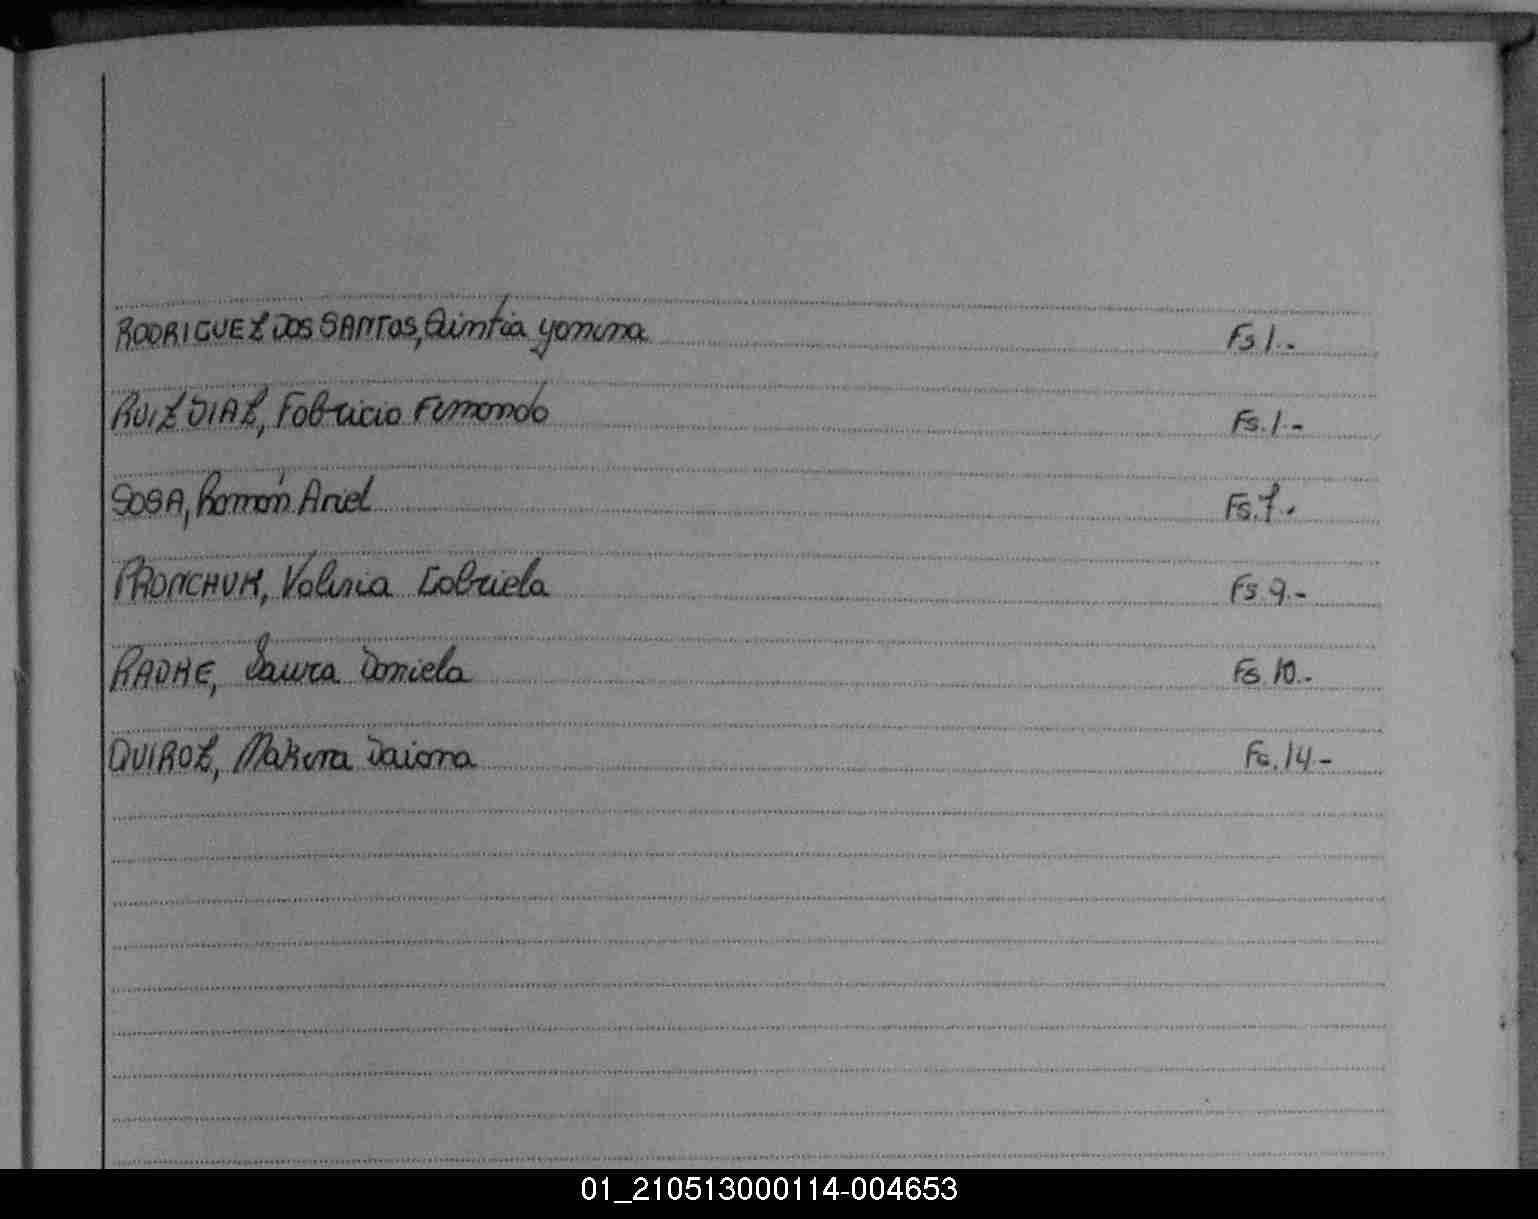 RODRIGUEZ DOS SANTOS, Cintia Yanina Fs 1.-
RUIZ DIAZ, Fabricio Fernando Fs. 1.-
SOSA, Ramón Ariel Fs. 7.
PRONCHUK, Valeria Gabriela Fs. 9.-
Laura Daniela Fs. 10.-
QUIROZ, Daiana Fs. 14.-
01_210513000114-004653